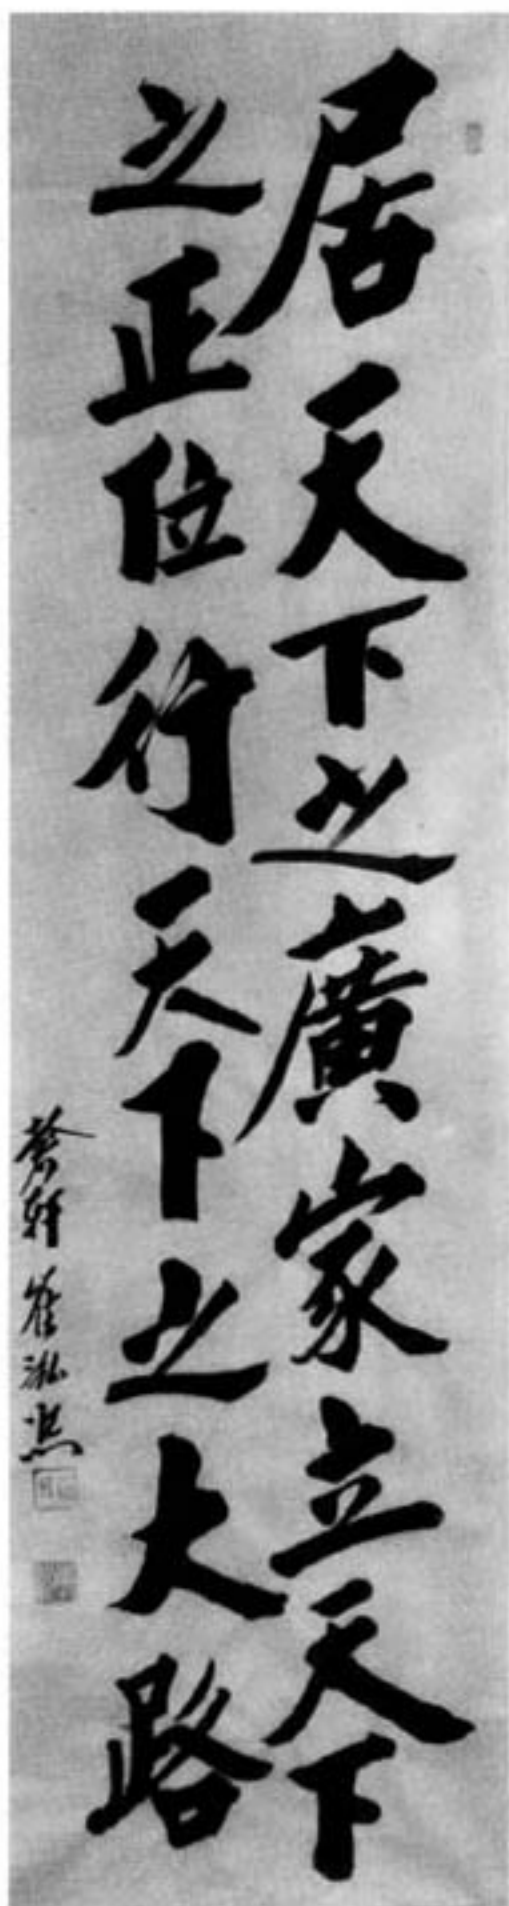 居天下之廣家立天下
之正位行天下之大路
蒼軒崔泓熙